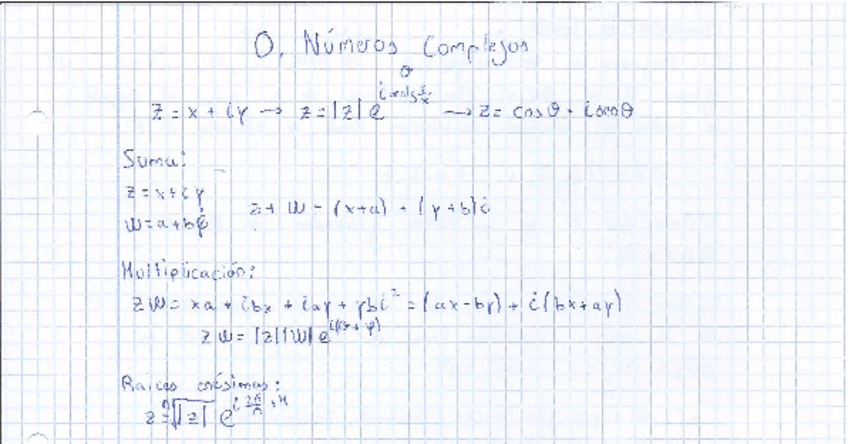 0. Números Complejos
θ
z = x + iy → z = |z| e^{i arctg y/x} → z = cos θ + i sen θ
Suma:
z = x + iy
w = a + bi
z + w = (x+a) + (y+b)i
Multiplicación:
zw = xa + ibx + iay + ybi² = (ax - by) + i(bx + ay)
zw = |z||w| e^{i(θ + φ)}
Raíces enésimas:
z = ⁿ√|z| e^{i 2π/n}